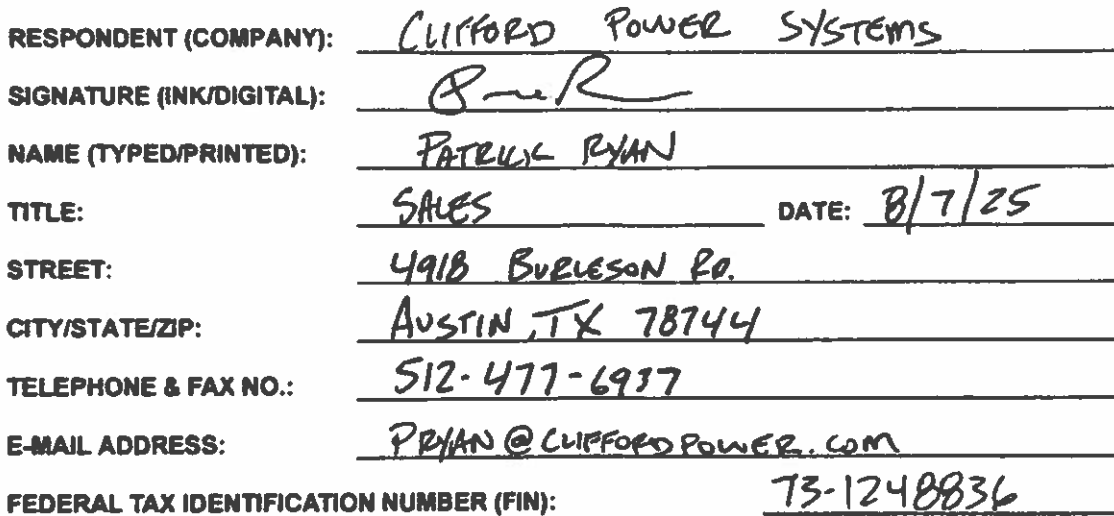 RESPONDENT (COMPANY): CLIFFORD POWER SYSTEMS
SIGNATURE (INK/DIGITAL):
NAME (TYPED/PRINTED): PATRICK RYAN
TITLE: SALES DATE: 8/7/25
STREET: 4918 BURLESON RD.
CITY/STATE/ZIP: AUSTIN, TX 78744
TELEPHONE & FAX NO.: 512-477-6937
E-MAIL ADDRESS: PRYAN@CLIFFORDPOWER.COM
FEDERAL TAX IDENTIFICATION NUMBER (FIN): 73-1248836